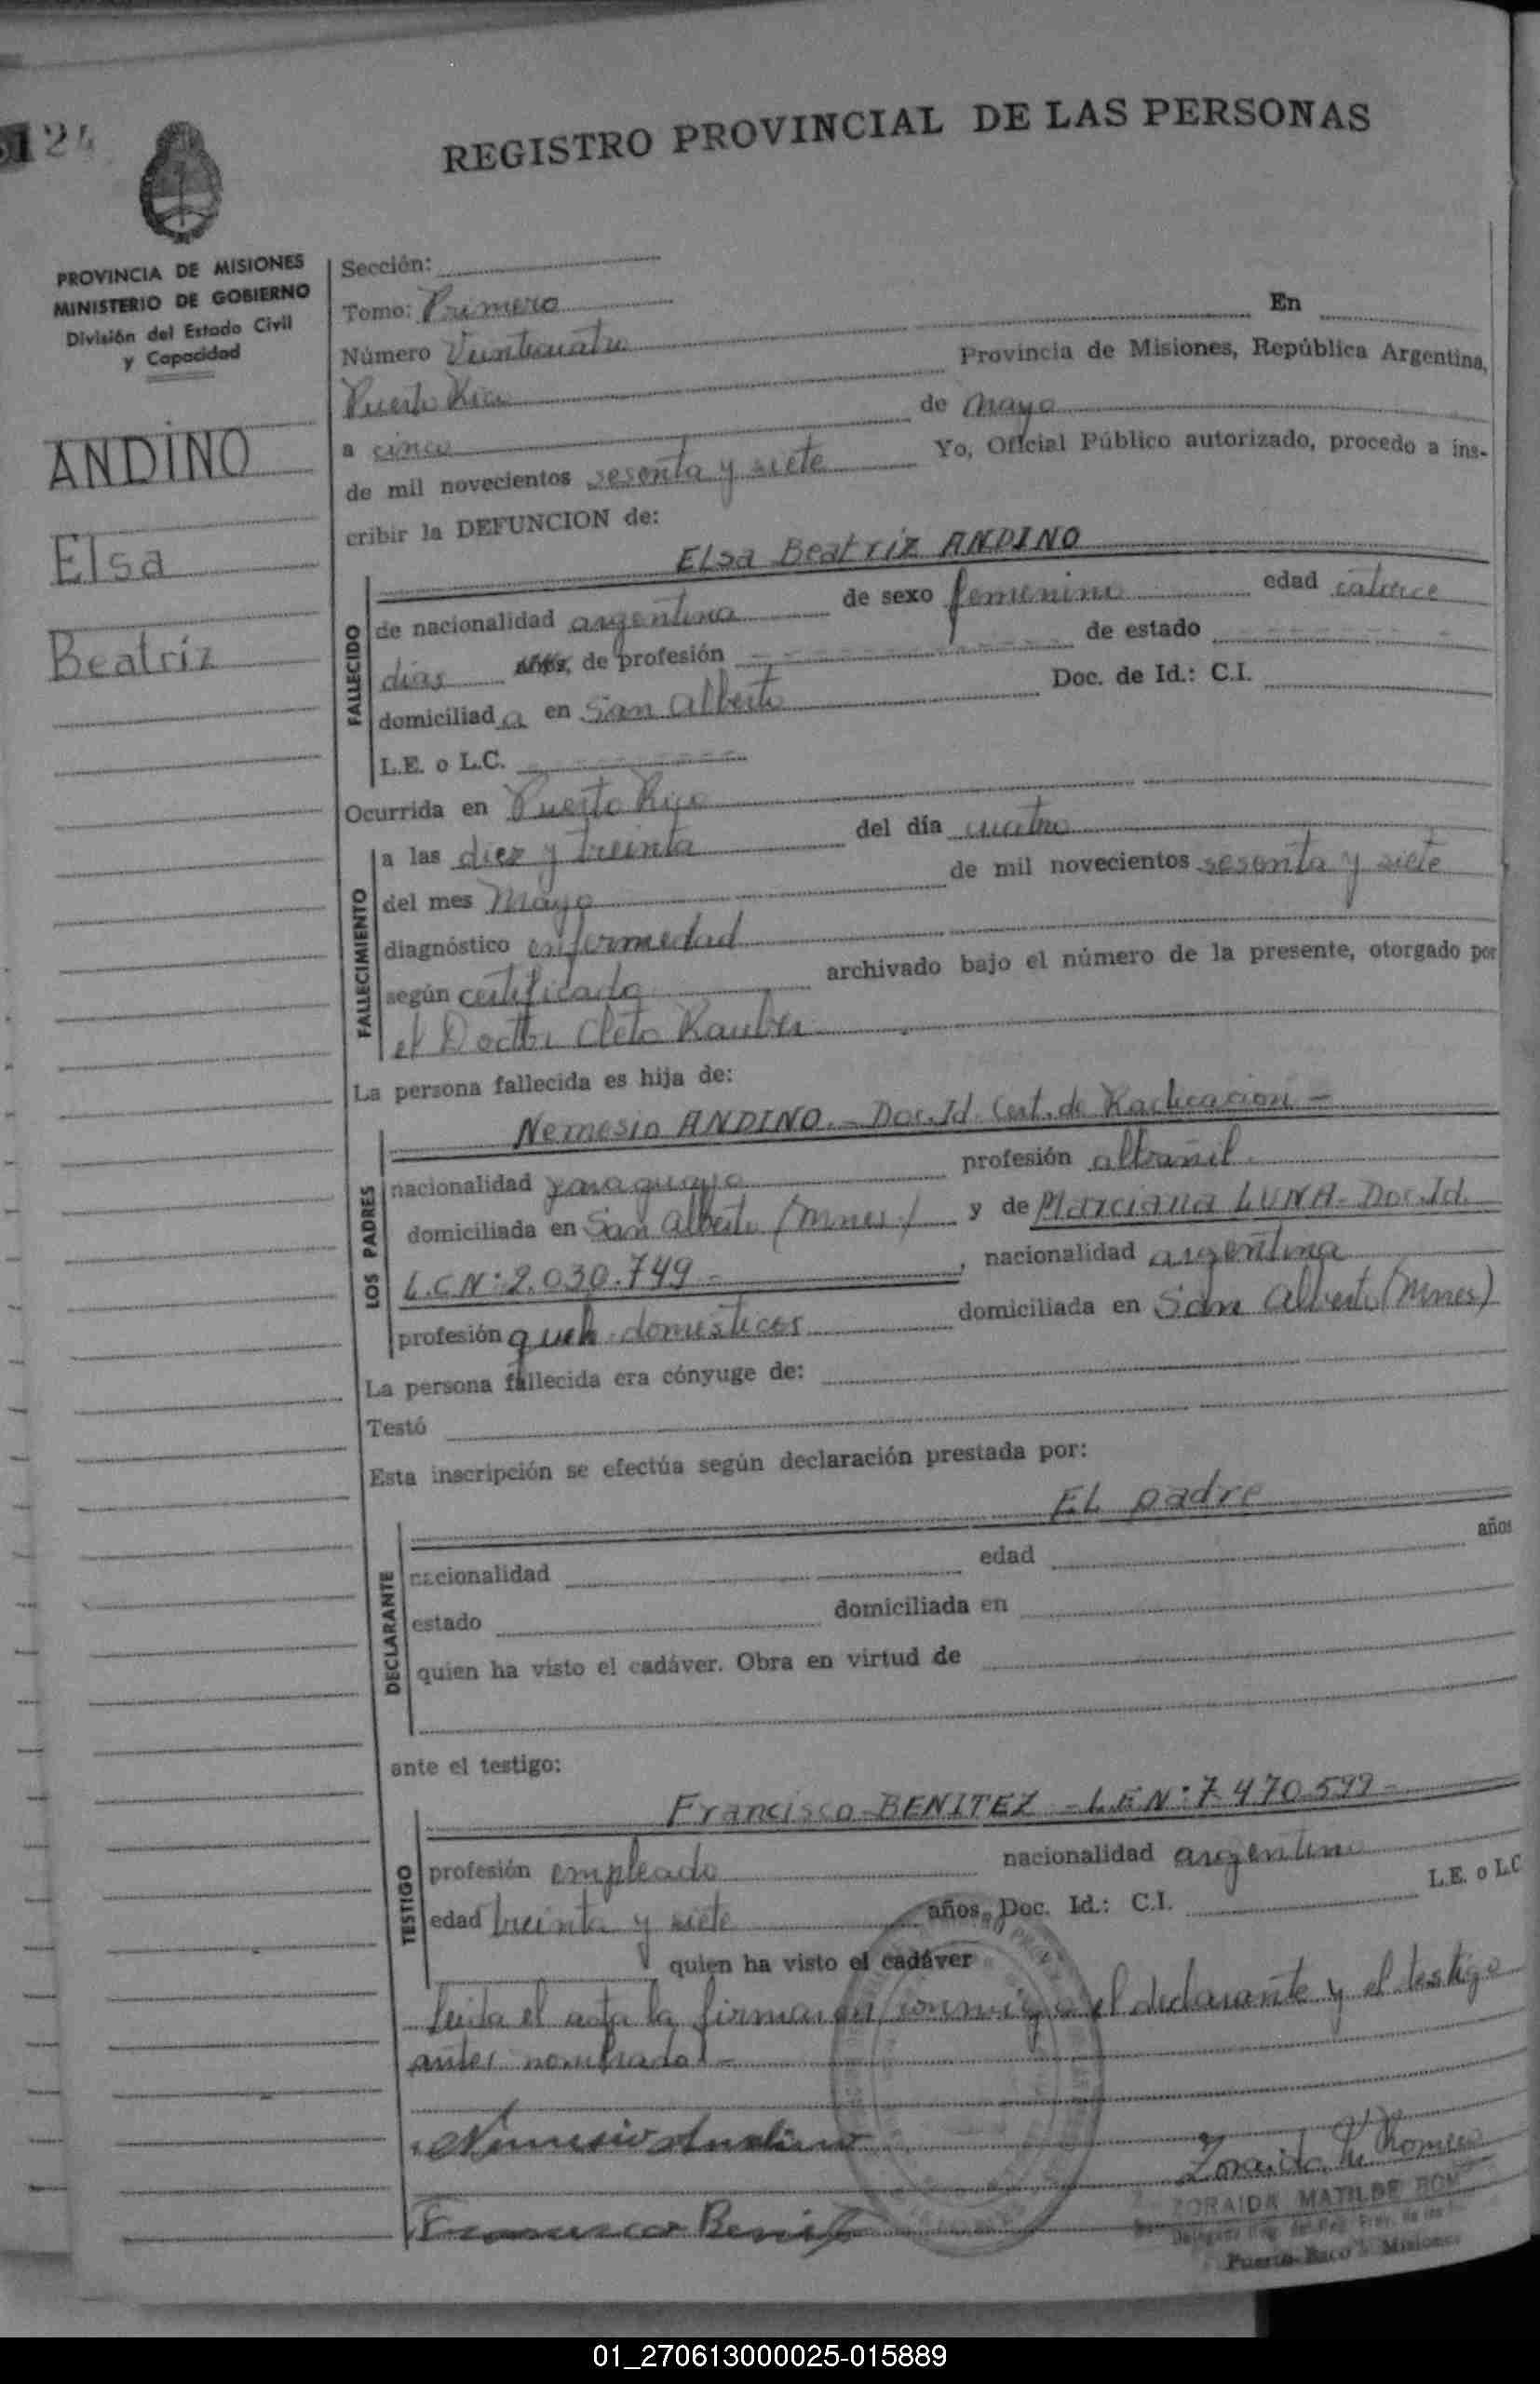 124
REGISTRO PROVINCIAL DE LAS PERSONAS
PROVINCIA DE MISIONES
MINISTERIO DE GOBIERNO
División del Estado Civil
y Capacidad
ANDINO
Elsa
Beatriz
Sección:
Tomo: Primero
Número Veinticuatro En
Puerto Rico Provincia de Misiones, República Argentina,
a cinco de Mayo
de mil novecientos sesenta y siete Yo, Oficial Público autorizado, procedo a ins-
cribir la DEFUNCION de:
Elsa Beatriz ANDINO
FALLECIDO
de nacionalidad argentina de sexo femenino edad catorce
dias años, de profesión de estado
domiciliada en San Alberto Doc. de Id.: C.I.
L.E. o L.C.
Ocurrida en Puerto Rico
FALLECIMIENTO
a las diez y treinta del día cuatro
del mes Mayo de mil novecientos sesenta y siete
diagnóstico enfermedad
según certificado archivado bajo el número de la presente, otorgado por
el Doctor Cleto Rauber
La persona fallecida es hija de:
LOS PADRES
Nemesio ANDINO.- Doc.Id. Cert. de Radicación -
nacionalidad paraguayo profesión albañil
domiciliada en San Alberto (Mnes) y de Marciana LUNA- Doc.Id.
L.C.N: 2.030.749 - , nacionalidad argentina
profesión queh. domesticos domiciliada en San Alberto (Mnes)
La persona fallecida era cónyuge de:
Testó
Esta inscripción se efectúa según declaración prestada por:
DECLARANTE
EL padre
nacionalidad edad años
estado domiciliada en
quien ha visto el cadáver. Obra en virtud de
ante el testigo:
TESTIGO
Francisco BENITEZ - L.E.N: 7.470.599 -
profesión empleado nacionalidad argentino
edad treinta y siete años, Doc. Id.: C.I. L.E. o L.C
quien ha visto el cadáver
Leida el acta la firmaron conmigo el declarante y el testigo
antes nombrados -
Nemesio Andino
Zoraida M. Romero
Francisco Benitez
ZORAIDA MATILDE ROM
Puerto Rico - Misiones
01_270613000025-015889